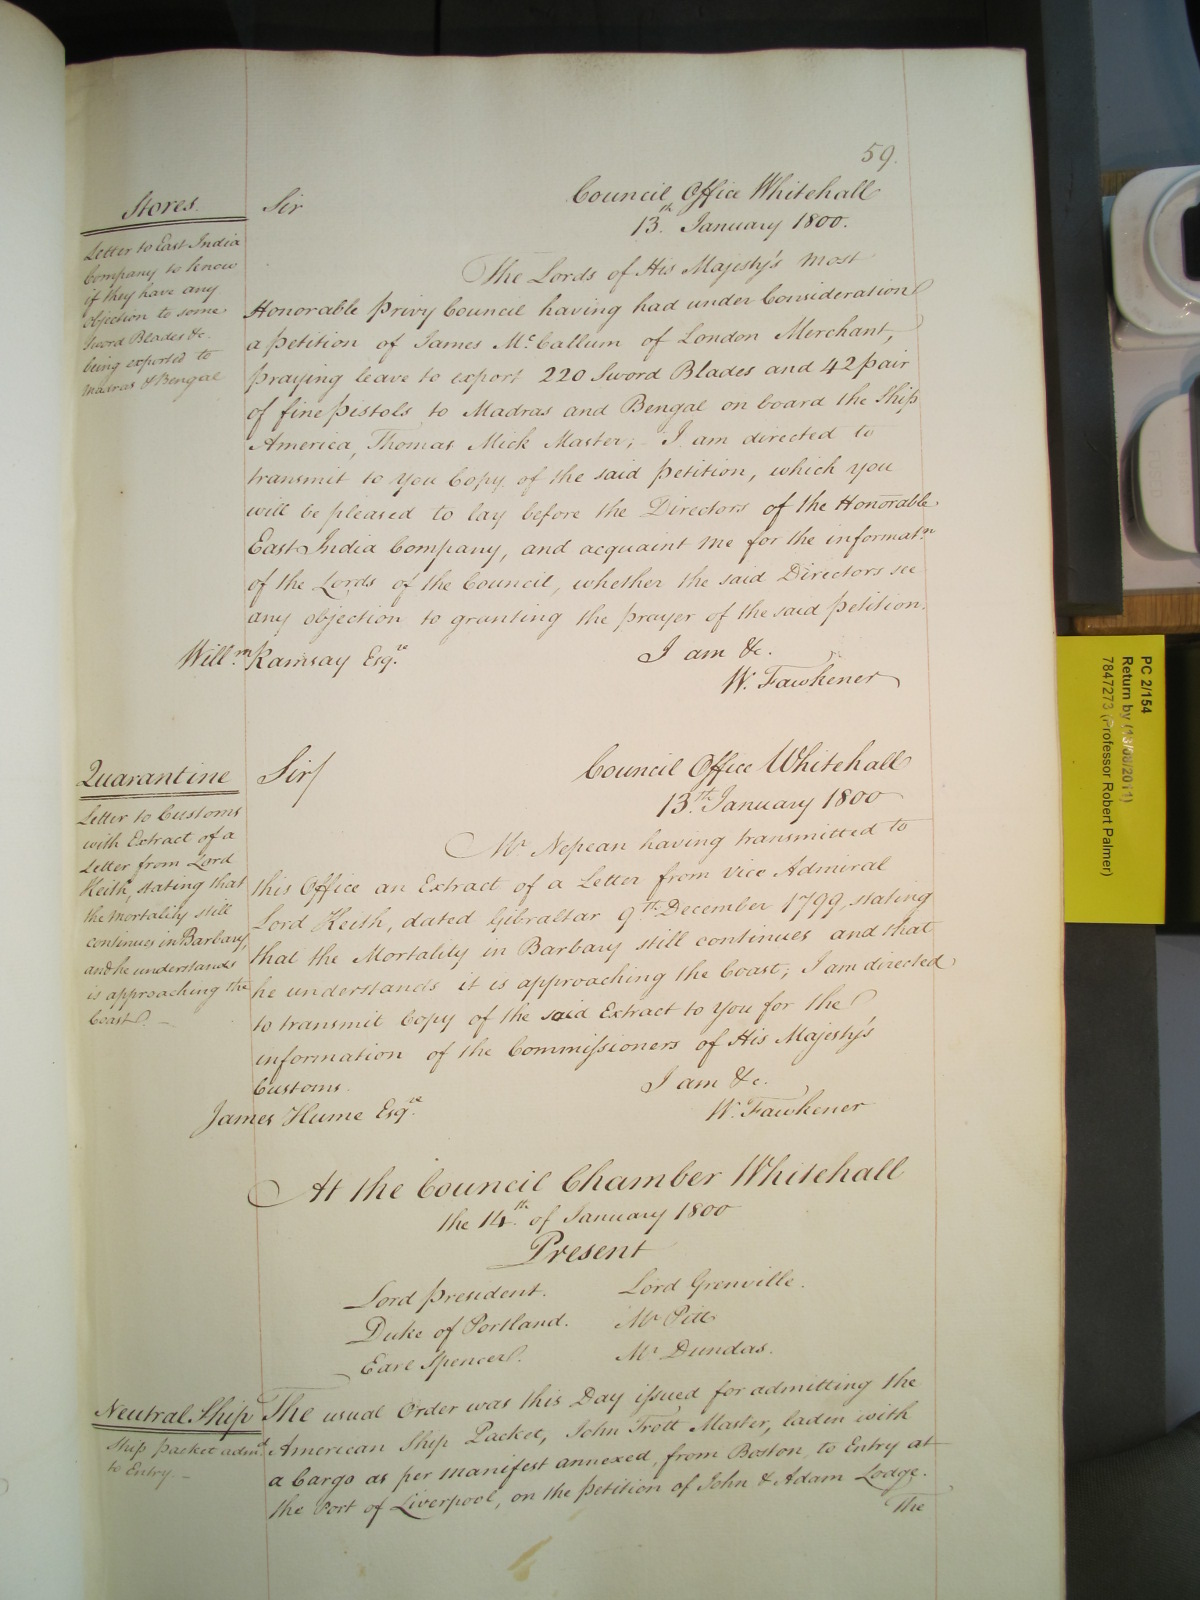 59.
Stores.
Letter to East India
Company to know
if they have any
objection to some
Sword Blades &c.
being exported to
Madras & Bengal
Sir
Council Office Whitehall
13th January 1800.
The Lords of His Majesty's most
Honorable Privy Council having had under Consideration
a Petition of James McCallum of London Merchant,
praying leave to export 220 Sword Blades and 42 pair
of fine Pistols to Madras and Bengal on board the Ship
America, Thomas Mick Master; I am directed to
transmit to you Copy of the said Petition, which you
will be pleased to lay before the Directors of the Honorable
East India Company, and acquaint me for the informatn
of the Lords of the Council, whether the said Directors see
any objection to granting the prayer of the said Petition.
Willm Ramsay Esqre
I am &c.
W. Fawkener
Quarantine
Letter to Customs
with Extract of a
Letter from Lord
Keith, stating that
the mortality still
continues in Barbary,
and he understands
is approaching the
Coast.
Sir/
Council Office Whitehall
13th January 1800
Mr Nepean having transmitted to
this Office an Extract of a Letter from Vice Admiral
Lord Keith, dated Gibraltar 9th December 1799, stating
that the Mortality in Barbary still continues and that
he understands it is approaching the Coast; I am directed
to transmit Copy of the said Extract to you for the
information of the Commissioners of His Majesty's
Customs.
I am &c.
James Hume Esqre
W. Fawkener
At the Council Chamber Whitehall
the 14th of January 1800
Present
Lord President. Lord Grenville.
Duke of Portland. Mr Pitt
Earl Spencer. Mr Dundas.
Neutral Ship
Ship Packet admd
to Entry.
The usual Order was this Day issued for admitting the
American Ship Packet, John Trott Master, laden with
a Cargo as per Manifest annexed, from Boston, to Entry at
the Port of Liverpool, on the Petition of John & Adam Lodge.
The
PC 2/154
Return by (13/08/2011)
7847273 (Professor Robert Palmer)